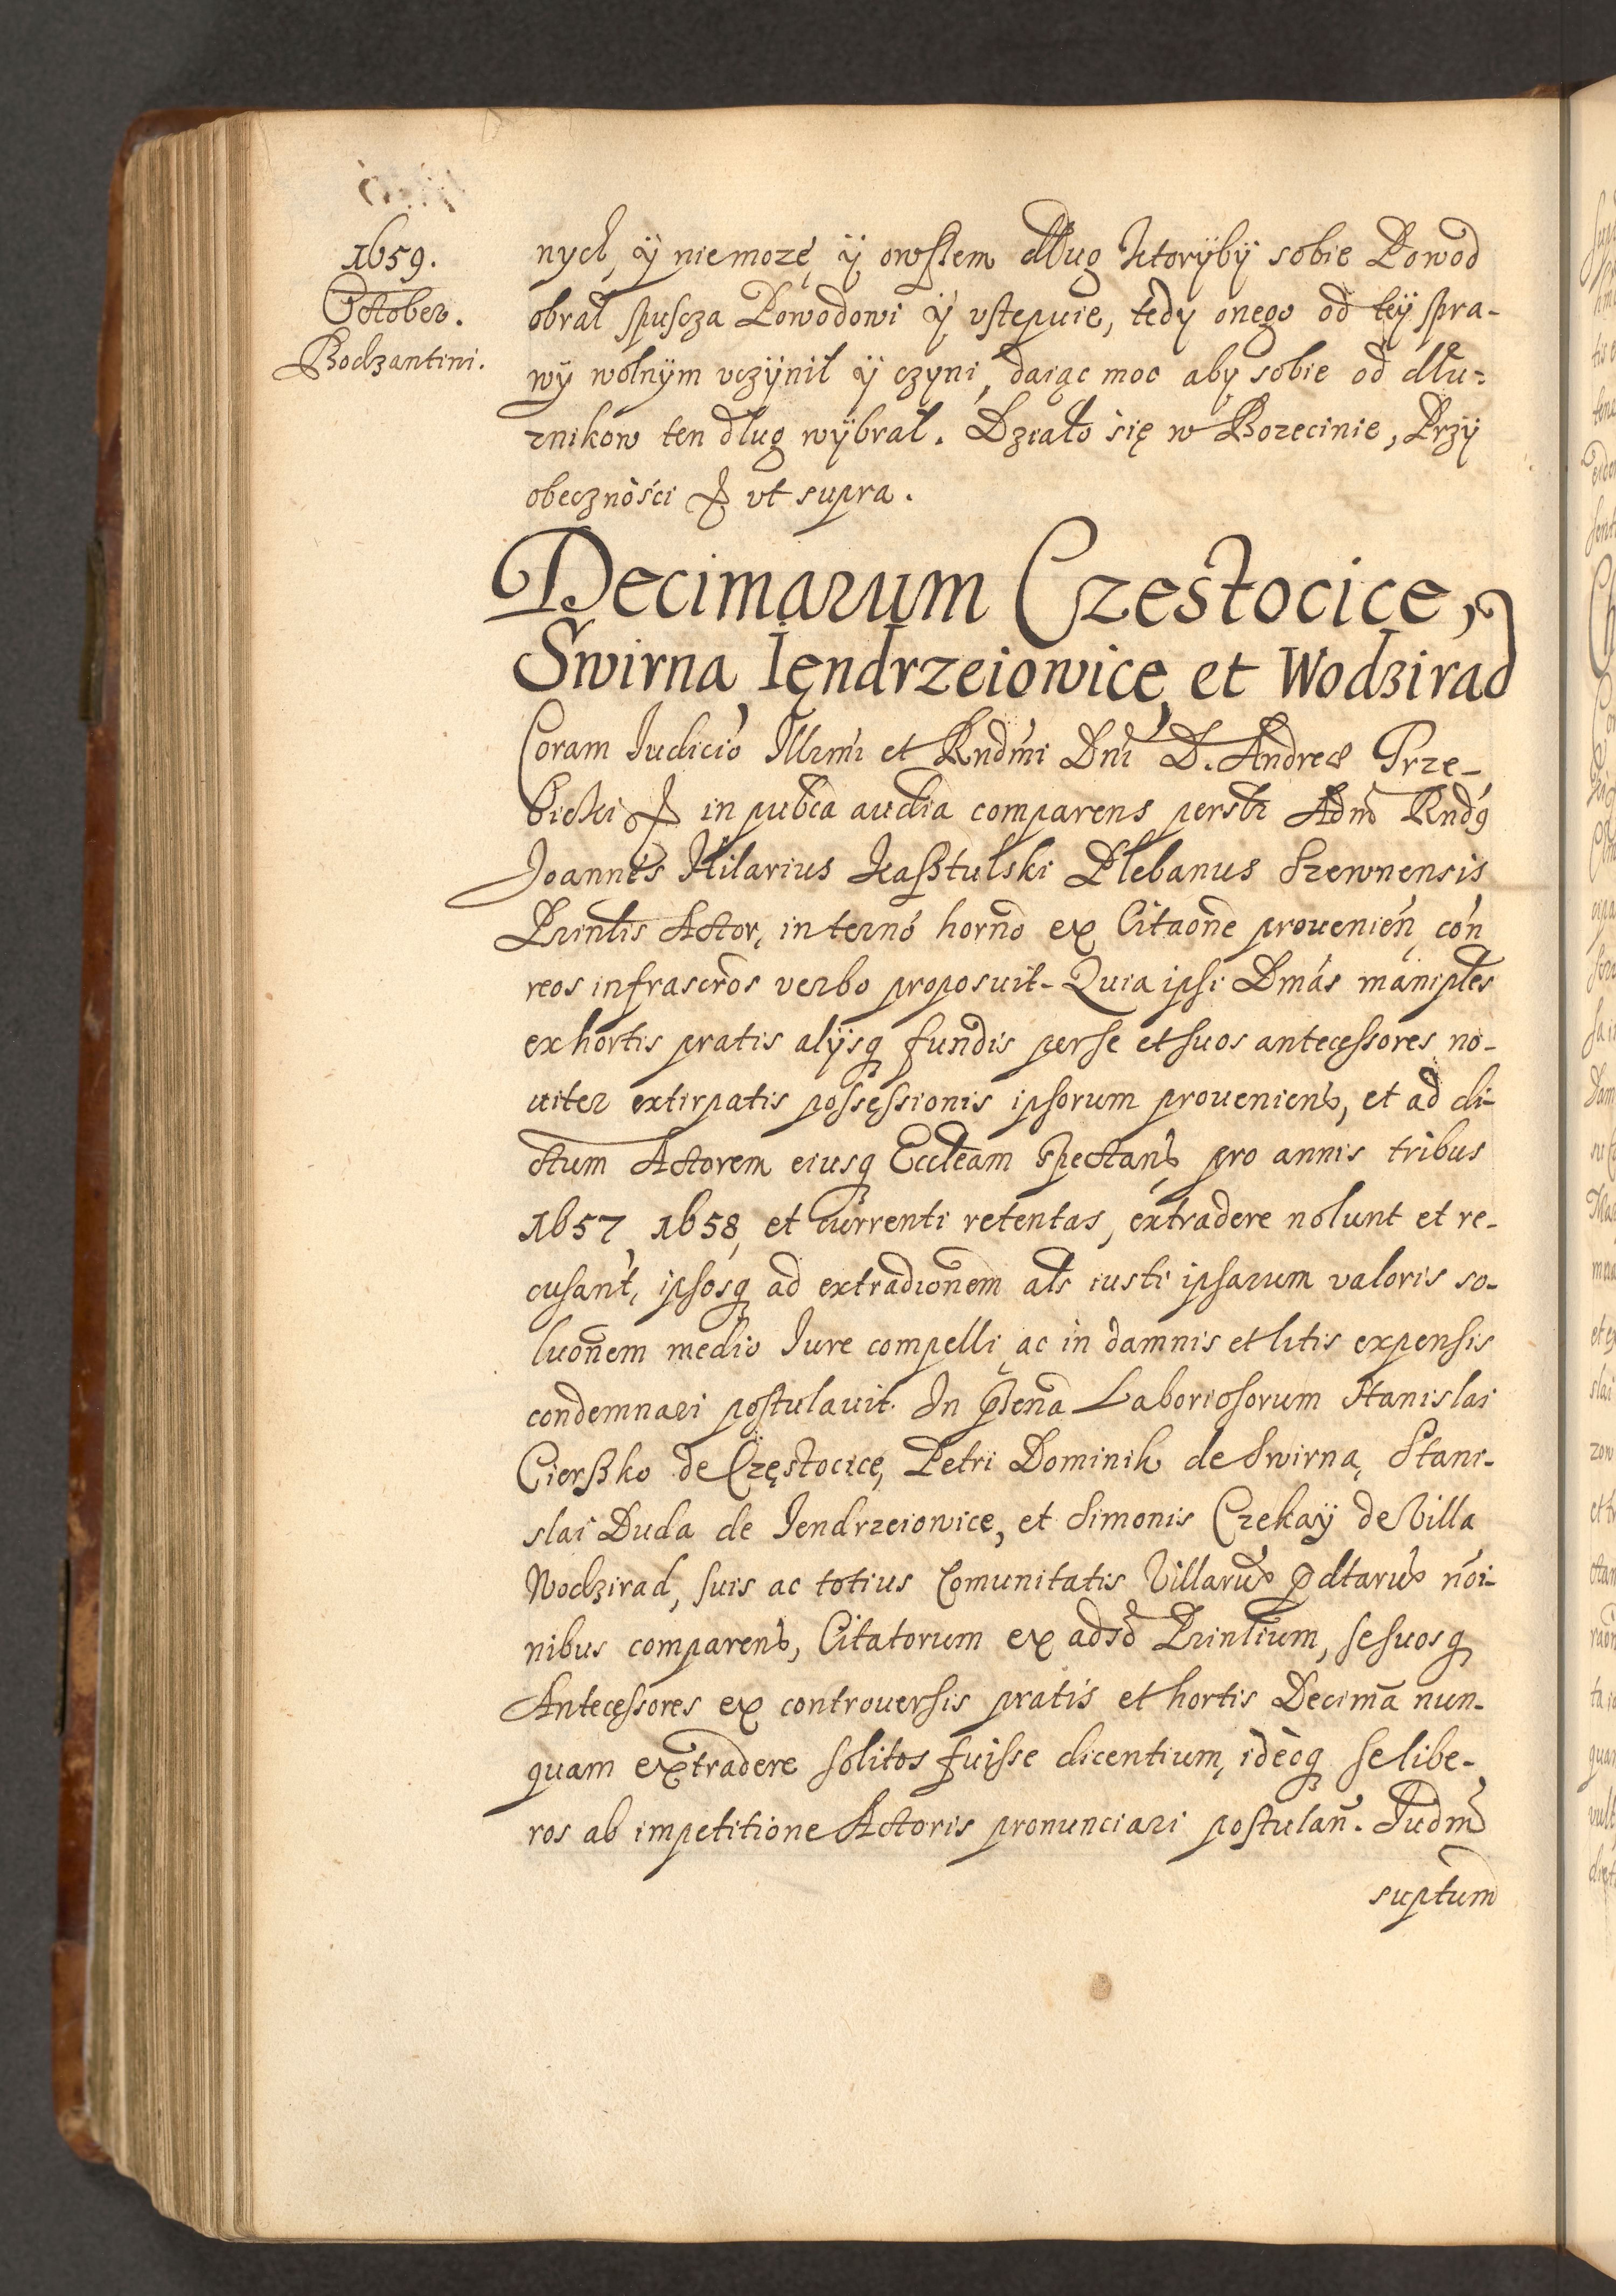 1659.
October.
Bodzantini.
nych, ÿ niemozę, ÿ owszem dług ktorÿbÿ sobie Powod
obrał spuscza Powodowi ÿ vstepuie, tedy onego od teÿ spra-
wÿ wolnÿm vczÿnił ÿ czyni, daiąc moc aby sobie od dłu-
znikow ten dług wÿbrał. Działo się w Borzecinie, Przÿ
obecznośći & vt supra.
Decimarum Czestocice,
Swirna, Ięndrzeiowice, et Wodzirad
Coram Iudicio Illrmi et Rndmi Dni D. Andreæ Trze-
bicki & in publca audia comparens personlr Adm Rndg
Joannes Hilarius Kasztulski Plebanus Szewnensis
Prinlis Actor, in termo horno ex Citaone prouenien, con
reos infrascros verbo proposuit. Quia ipsi Dmas maniples
ex hortis pratis alÿsq fundis per se et suos antecessores no-
uiter extirpatis possessionis ipsorum prouenien, et ad di-
ctum Actorem eiusq Eccleam spectan, pro annis tribus
1657, 1658, et currenti retentas, extradere nolunt et re-
cusant, ipsosq ad extradionem als iusti ipsarum valoris so-
luonem medio Iure compelli, ac in damnis et litis expensis
condemnari postulauit. In pñena Laboriosorum Stanislai
Cierszko de Częstocice, Petri Dominik de Swirna, Stani-
slai Duda de Iendrzeiowice, et Simonis Czekaÿ de Villa
Wodzirad, suis ac totius Comunitatis Villaru pdltaru noi-
nibus comparen, Citatorum ex adso Prinlium, se suosq
Antecessores ex controuersis pratis et hortis Decima nun-
quam extradere solitos fuisse dicentium, ideoq se libe-
ros ab impetitione Actoris pronunciari postulan. Iudm
suptum